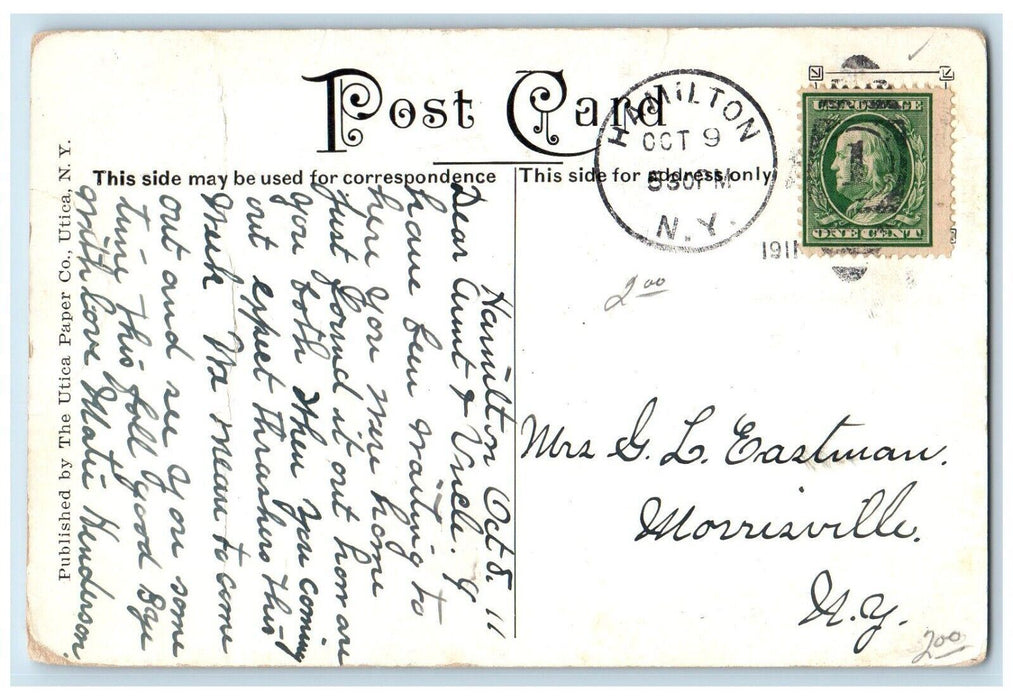 Post Card
This side may be used for correspondence
This side for address only
HAMILTON
OCT 9
530 PM
N.Y.
1911
ONE CENT
1
2 00
Hamilton Oct 8. 11
Dear Aunt & Uncle. I
have been waiting to
hear you were home
just found it out how are
you both when you coming
out expect thrashers this
week We mean to come
out and see you some
time this fall good Bye
with love Matie Henderson.
Mrs G. L. Eastman.
Morrisville.
N.Y.
2 00
Published by The Utica Paper Co., Utica, N. Y.